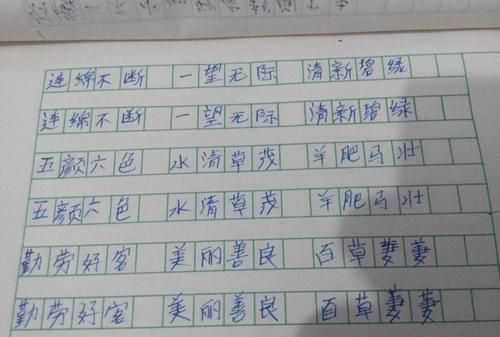 连绵不断 一望无际 清新碧绿
连绵不断 一望无际 清新碧绿
五颜六色 水清草茂 羊肥马壮
五颜六色 水清草茂 羊肥马壮
勤劳好客 美丽善良 百草萋萋
勤劳好客 美丽善良 百草萋萋